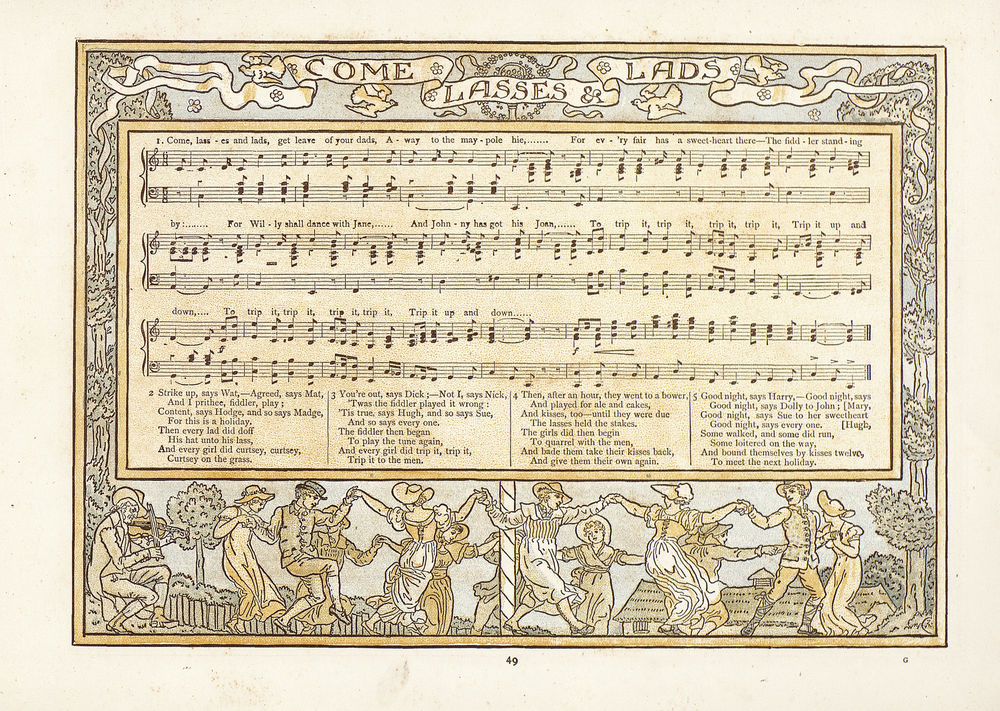 COME LASSES & LADS
1. Come, lass - es and lads, get leave of your dads, A - way to the may - pole hie,....... For ev - 'ry fair has a sweet-heart there—The fidd - ler stand - ing
by:....... For Wil - ly shall dance with Jane,...... And John - ny has got his Joan,...... To trip it, trip it, trip it, trip it, Trip it up and
down,.... To trip it, trip it, trip it, trip it, Trip it up and down......
2 Strike up, says Wat,—Agreed, says Mat,
And I prithee, fiddler, play;
Content, says Hodge, and so says Madge,
For this is a holiday.
Then every lad did doff
His hat unto his lass,
And every girl did curtsey, curtsey,
Curtsey on the grass.
3 You're out, says Dick;—Not I, says Nick,
'Twas the fiddler played it wrong:
'Tis true, says Hugh, and so says Sue,
And so says every one.
The fiddler then began
To play the tune again,
And every girl did trip it, trip it,
Trip it to the men.
4 Then, after an hour, they went to a bower,
And played for ale and cakes,
And kisses, too—until they were due
The lasses held the stakes.
The girls did then begin
To quarrel with the men,
And bade them take their kisses back,
And give them their own again.
5 Good night, says Harry,—Good night, says
Good night, says Dolly to John; [Mary,
Good night, says Sue to her sweetheart
Good night, says every one. [Hugh,
Some walked, and some did run,
Some loitered on the way,
And bound themselves by kisses twelve,
To meet the next holiday.
49
G